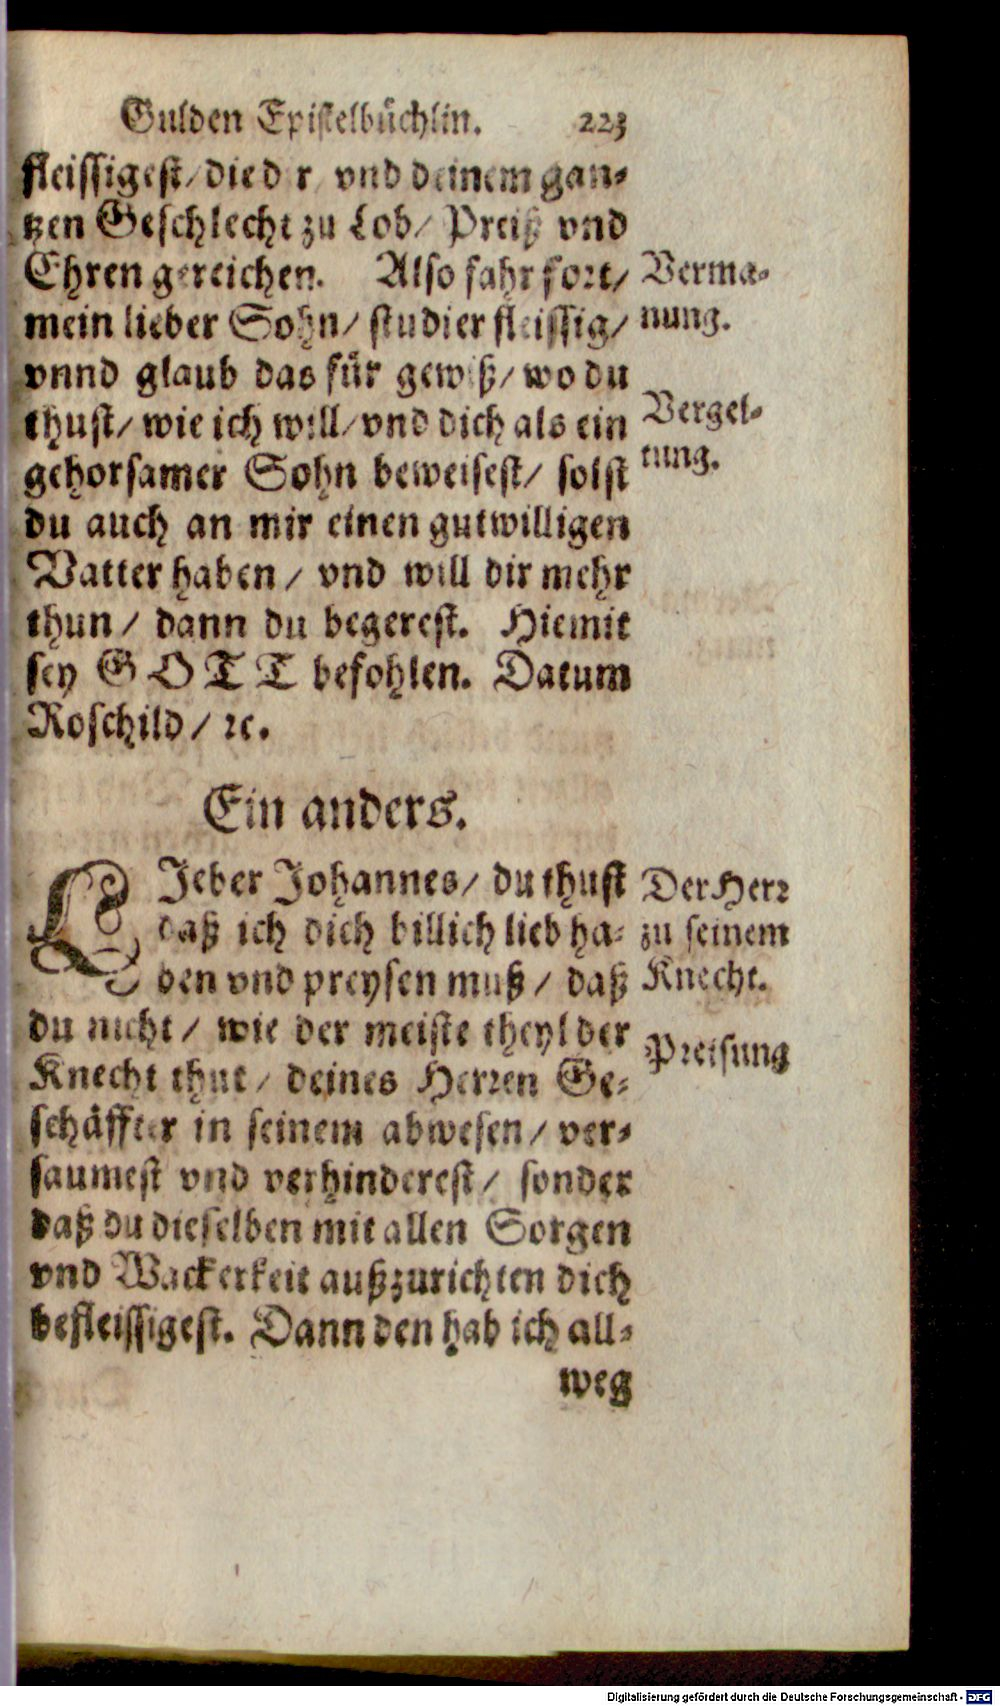 Gulden Epistelbüchlin. 223
fleissigest/ die d r/ vnd deinem gan-
tzen Geschlecht zu Lob/ Preiß vnd
Ehren gereichen. Also fahr fort/
mein lieber Sohn/ studier fleissig/
vnnd glaub das für gewiß/ wo du
thust/ wie ich will/ vnd dich als ein
gehorsamer Sohn beweisest/ solst
du auch an mir einen gutwilligen
Vatter haben/ vnd will dir mehr
thun/ dann du begerest. Hiemit
sey GOTT befohlen. Datum
Roschild/ ꝛc.
Verma-
nung.
Vergel-
tung.
Ein anders.
LIeber Johannes/ du thust
daß ich dich billich lieb ha-
ben vnd preysen muß/ daß
du nicht/ wie der meiste theyl der
Knecht thut/ deines Herren Ge-
schäffter in seinem abwesen/ ver-
saumest vnd verhinderest/ sonder
daß du dieselben mit allen Sorgen
vnd Wackerkeit außzurichten dich
befleissigest. Dann den hab ich all-
weg
Der Herr
zu seinem
Knecht.
Preisung
Digitalisierung gefördert durch die Deutsche Forschungsgemeinschaft - DFG